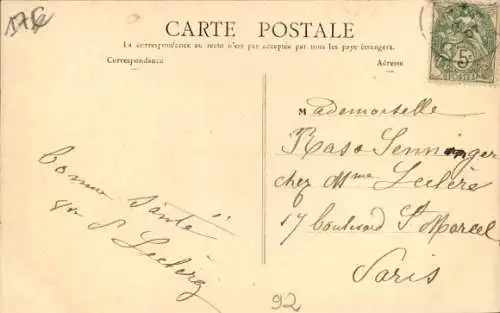 175
CARTE POSTALE
La correspondance au recto n'est pas acceptée par tous les pays étrangers.
Correspondance
Adresse
5c
POSTES
Mademoiselle
Rasa Senninger
chez Mme Leclère
17 boulevard St Marcel
Paris
bonne santé
Leclère
92